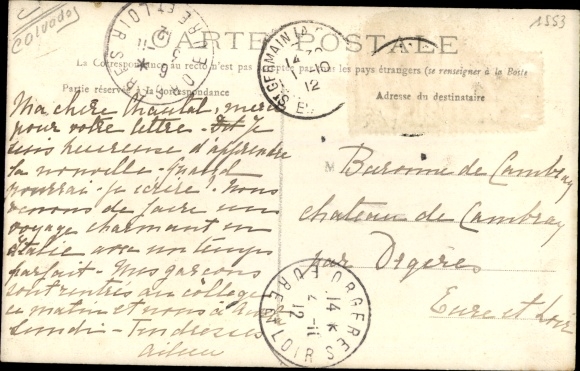 Calvados
1553
CARTE POSTALE
La Correspondance au recto n'est pas acceptée par tous les pays étrangers (se renseigner à la Poste
Partie réservée à la correspondance
Adresse du destinataire
Ma chère Chantal, merci
pour votre lettre - Je
suis heureuse d'apprendre
la nouvelle - Quand
pourrai-je écrire ! Nous
venons de faire un
voyage charmant en
Italie avec un temps
parfait - Mes garçons
sont rentrés au collège
ce matin et nous à
Lundi - Tendresses
M
Baronne de Cambray
château de Cambray
par Orgères
Eure et Loir
St GERMAIN
10
12
ORGERES
14 K
4 - 11
12
EURE ET LOIR